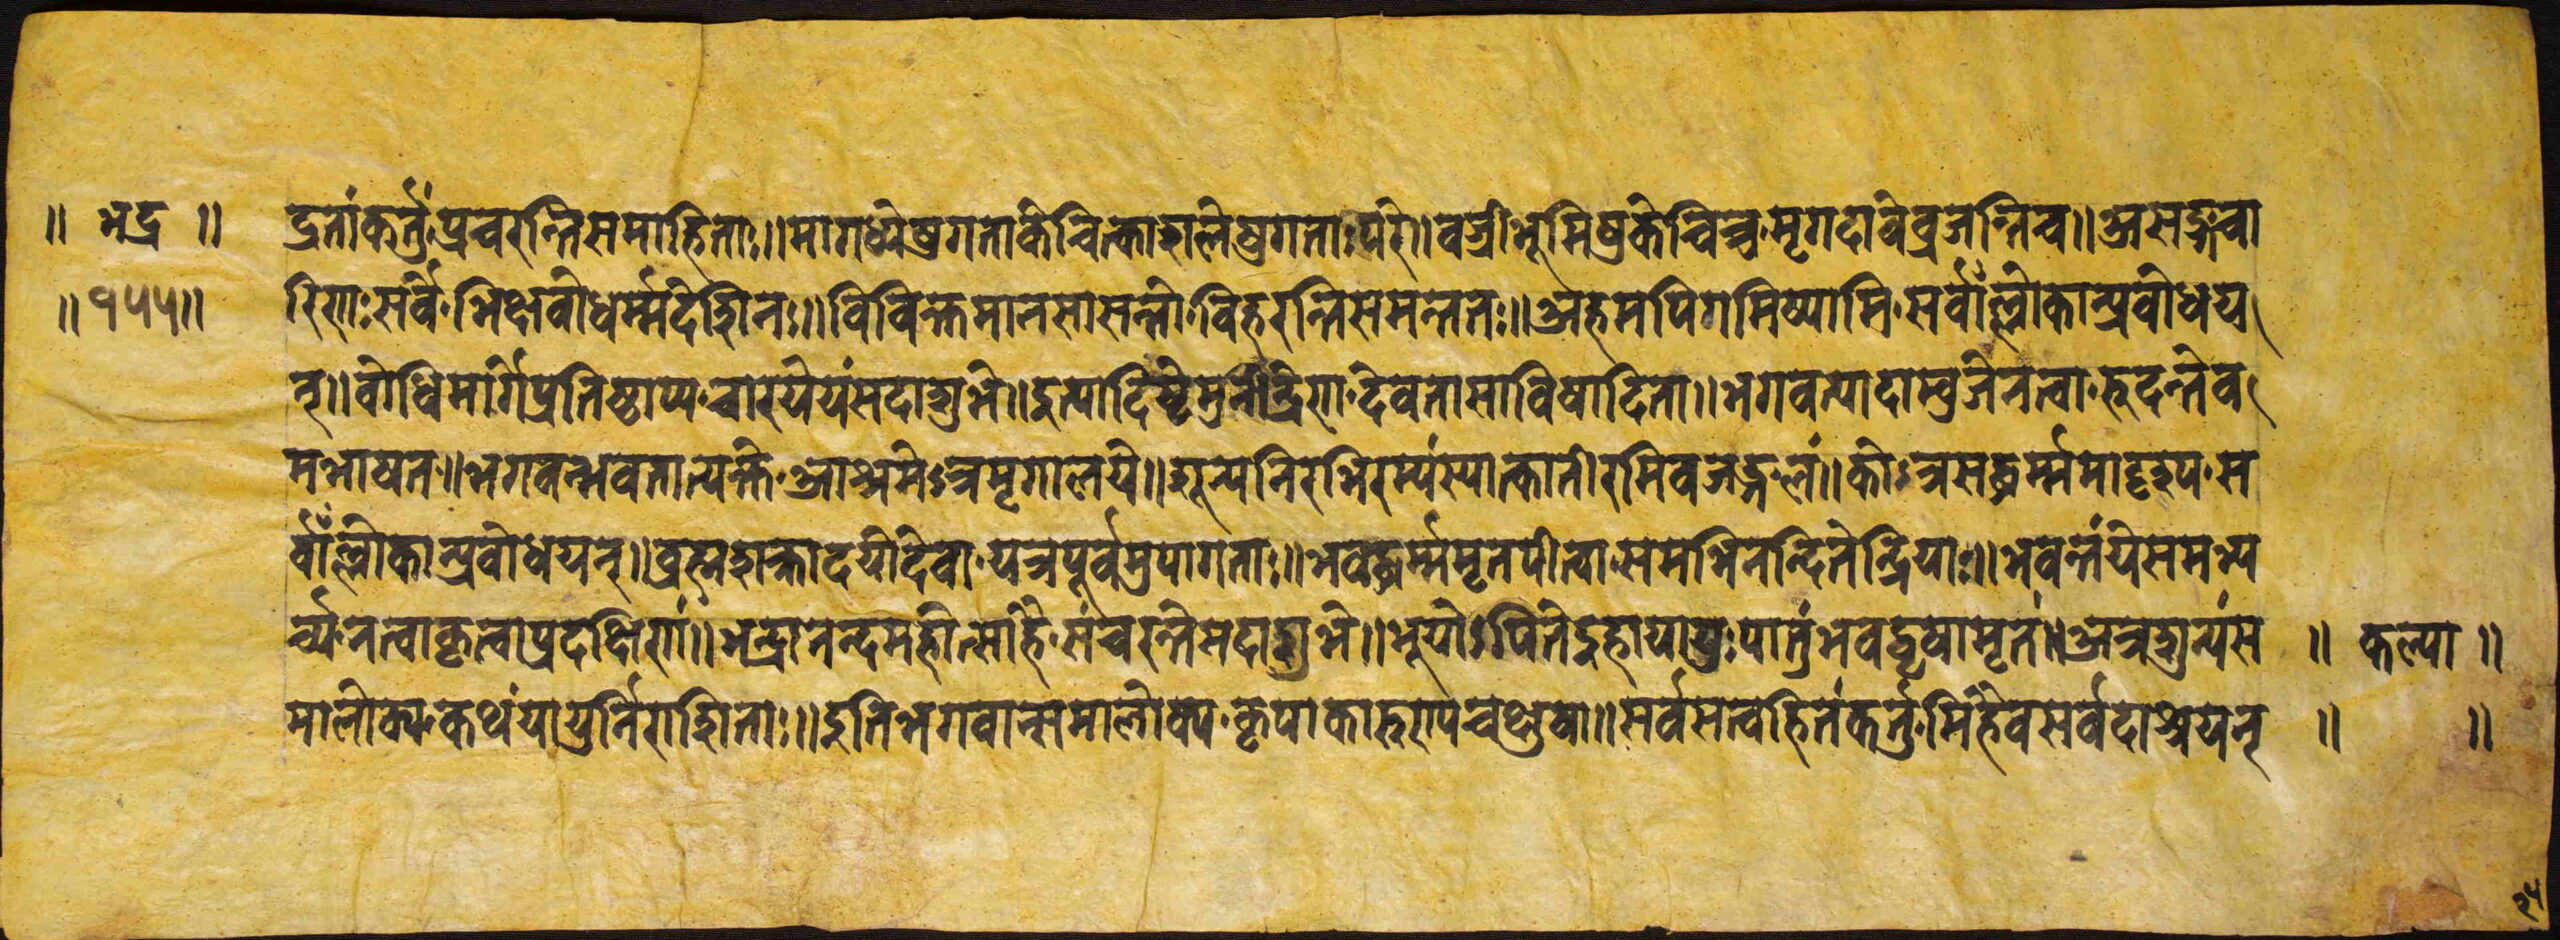 ॥ भद्र ॥ द्रतांकर्तुं॰प्रचरन्तिसमाहिताः॥मागधेषुगताकेचित्काशलेषुगताःपरे॥वज्रीभूमिषुकेचिच्च॰मृगदावेव्रजन्तिच॥असङ्गचा
॥१५५॥ रिणाः॰सर्वे॰भिक्षवोधर्म्मदेशिनः॥विविक्तमानसासन्तो॰विहरन्तिसमन्ततः॥अहमपिगमिष्यामि॰सर्वांल्लोकान्प्रबोधय
न्॥बोधिमार्गेप्रतिष्ठाप्य॰चारयेयंसदाशुभे॥इत्यादिष्टेमुनीन्द्रेण॰देवतासाविषादिता॥भगवत्पादाम्बुजेनत्वा॰रुदन्तेव
मभाषत॥भगवन्भवतात्यक्ते॰आश्रमेऽत्रमृगालये॥शून्येनिरभिरम्यंस्यात्कातीरमिवजङ्गलं॥कोऽत्रसद्धर्म्ममादृशेप॰स
र्वांल्लोकान्प्रबोधयन्॥ब्रह्मशक्रादयोदेवा॰यत्रपूर्वमुपागताः॥भवद्धर्म्ममृतपीत्वा॰समभिनन्दितेन्द्रियाः॥भवन्तंयेसमभ्य
र्च्य॰नत्वाकृत्वाप्रदक्षिणां॥भद्रानन्दमहोत्साहैः॰संचरन्तेसदाशुभे॥भूयोऽपितेइहायायुः॰पातुंभवद्वृषामृतं॥अत्रशून्यंस ॥ कल्पा ॥
मालोक्य॰कथंयायुर्निराशिताः॥इतिभगवान्समालोक्य॰कृपाकारुण्यचक्षुषा॥सर्वसत्वहितंकर्तु॰मिहैवसर्वदाश्रयन् ॥ ॥